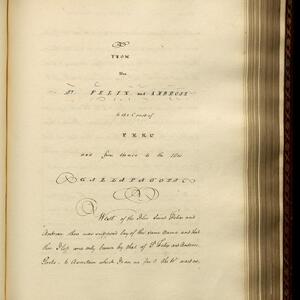 FROM
the
St. FELIX and AMBROSE
to the Coast of
PERU
and from thence to the Isles
GALLAPAGOES
West of the Isles Saint Felix and
Ambrose there was supposed lay of the same name and that
this Isles was only known by that of St Felix and Ambrose.
to ascertain which I ran as far